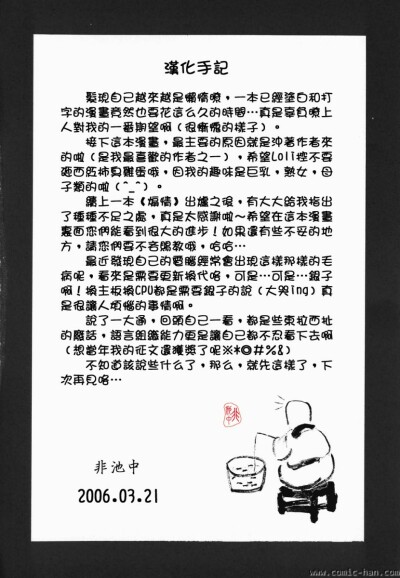 漢化手記
髮現自己越來越是懶惰嘹，一本已經塗白和打
字的漫畫竟然也要花這么久的時間…真是辜負嘹上
人對我的一番期望啊（很慚愧的樣子）。
接下這本漫畫，最主要的原因就是沖著作者來
的啦（是我最喜歡的作者之一），希望Loli控不要
砸西紅柿臭雞蛋哦，因我的趣味是巨乳，熟女，母
子類的啦（^_^）。
續上一本《煽情》出爐之後，有大大給我指出
了種種不足之處，真是太感謝啦～希望在這本漫畫
裏面您們能看到很大的進步！如果還有些不妥的地
方，請您們要不吝賜教哦，哈哈…
最近發現自己的電腦經常會出現這樣那樣的毛
病呢，看來是需要更新換代咯，可是…可是…銀子
啊！換主板換CPU都是需要銀子的說（大哭ing）真
是很讓人煩惱的事情啊。
說了一大通，回頭自己一看，都是些東拉西扯
的廢話，語言組織能力更是讓自己都不忍看下去啊
（想當年我的征文還獲獎了呢※*◎#%&）
不知道該說些什么了，那么，就先這樣了，下
次再見咯…
非池中
2006.03.21
www.comic-han.com